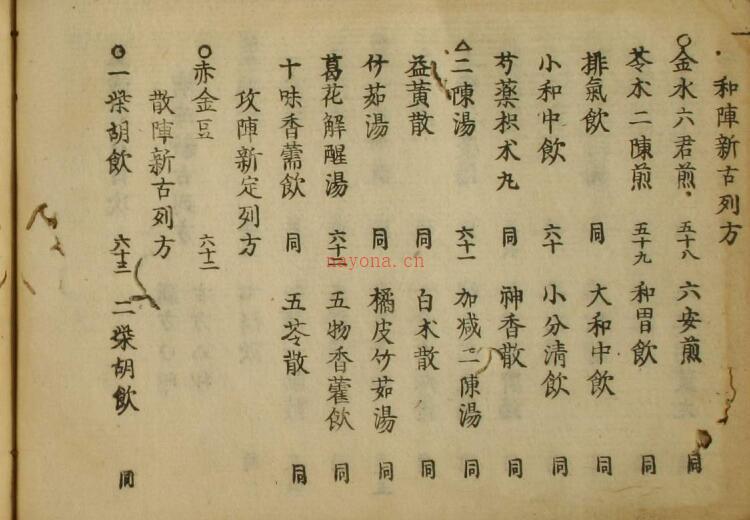 和陣新古列方
金水六君煎 五十八 六安煎 同
苓朮二陳煎 五十九 和胃飲 同
排氣飲 同 大和中飲 同
小和中飲 六十 小分清飲 同
芍藥枳朮丸 同 神香散 同
二陳湯 六十一 加减二陳湯 同
益黃散 同 白朮散 同
竹茹湯 同 橘皮竹茹湯 同
葛花解醒湯 六十二 五物香薷飲 同
十味香薷飲 同 五苓散 同
攻陣新定列方
赤金豆 六十二
散陣新古列方
一柴胡飲 六十三 二柴胡飲 同
nayona.cn